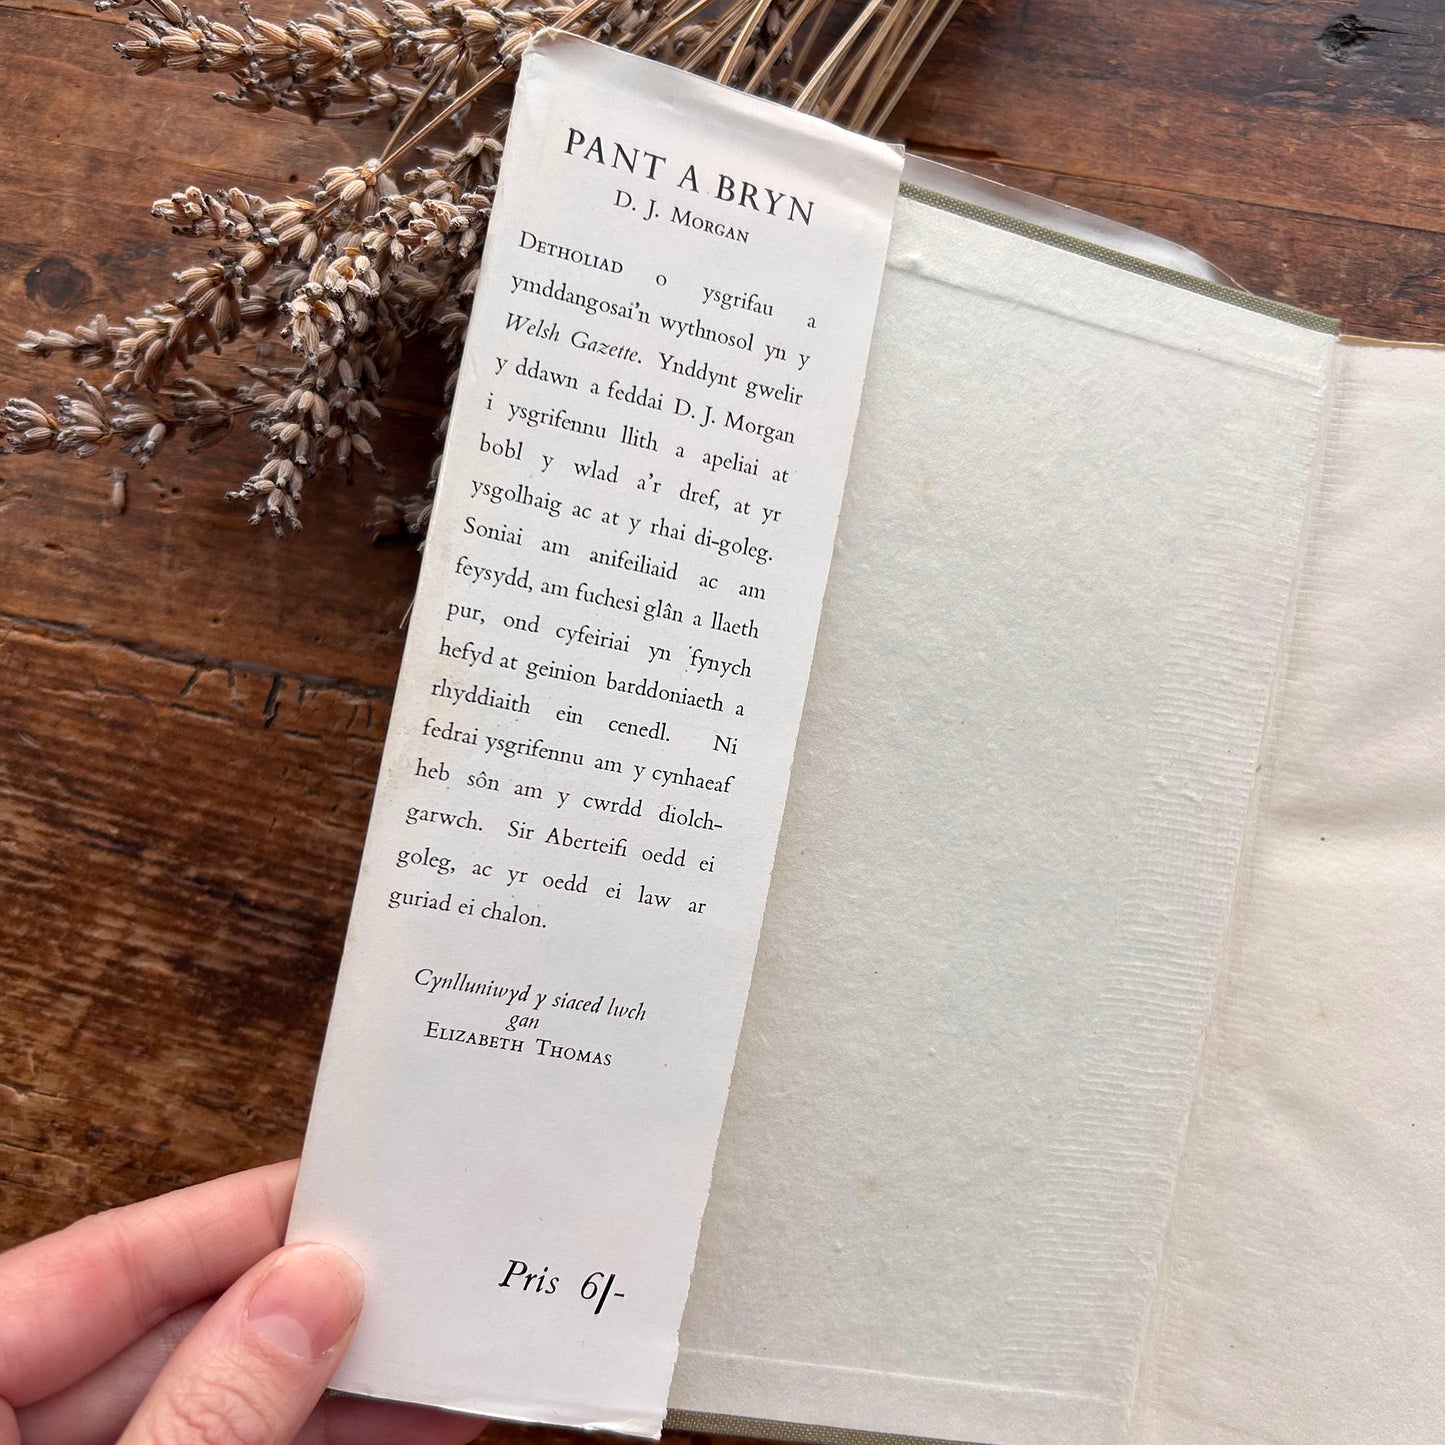 PANT A BRYN
D. J. MORGAN
DETHOLIAD o ysgrifau a
ymddangosai'n wythnosol yn y
Welsh Gazette. Ynddynt gwelir
y ddawn a feddai D. J. Morgan
i ysgrifennu llith a apeliai at
bobl y wlad a'r dref, at yr
ysgolhaig ac at y rhai di-goleg.
Soniai am anifeiliaid ac am
feysydd, am fuchesi glân a llaeth
pur, ond cyfeiriai yn fynych
hefyd at geinion barddoniaeth a
rhyddiaith ein cenedl. Ni
fedrai ysgrifennu am y cynhaeaf
heb sôn am y cwrdd diolch-
garwch. Sir Aberteifi oedd ei
goleg, ac yr oedd ei law ar
guriad ei chalon.
Cynlluniwyd y siaced lwch
gan
ELIZABETH THOMAS
Pris 6/-